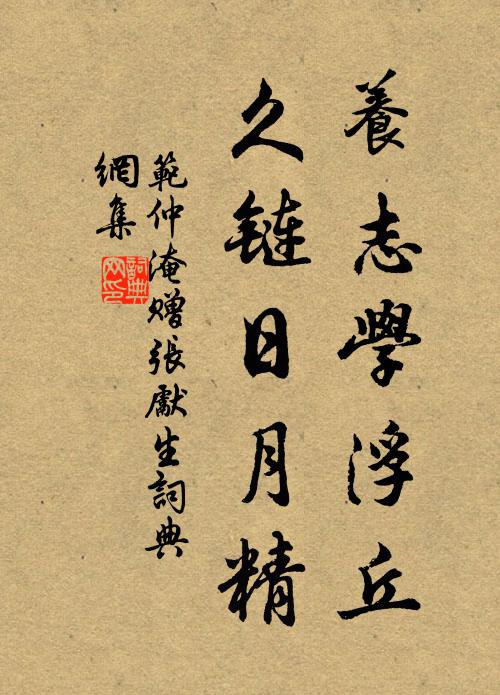 養志學浮丘
久鏈日月精
範仲淹贈張獻生詞典
網集
詞典
网印